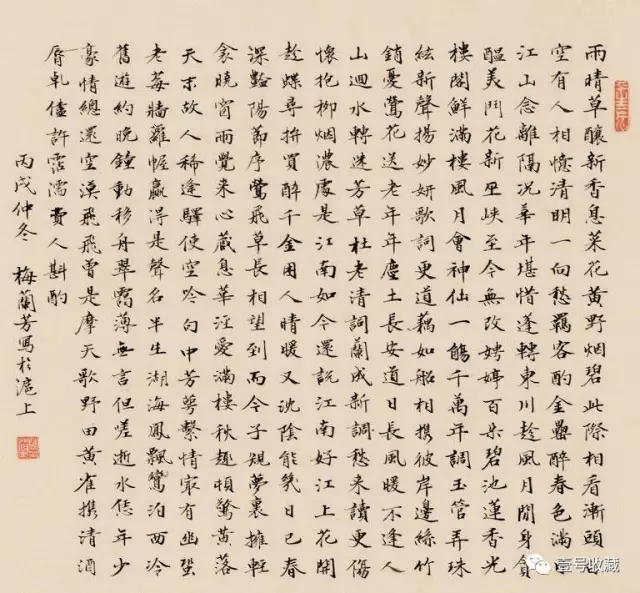 雨晴草釀新香息菜花黃野烟碧此際相看漸頭白
空有人相憶清明一向愁羈客酌金罍醉春色滿
江山念離隔況華年堪惜蓬轉東川趁風月閒身貪
醞美鬥花新巫峽至今無改娉婷百朵碧池蓮香光
樓閣鮮滿樓風月會神仙一觴千萬年調玉管弄珠
絃新聲揚妙妍歌詞更道藕如船相携彼岸邊絲竹
銷憂鶯花送老年年塵土長安道日長風暖不逢人
山迴水轉迷芳草杜老清詞蘭成新調愁來讀更傷
懷抱柳烟濃處是江南如今還說江南好江上花開
趁蝶尋拚買醉千金困人晴暖又沈陰能幾日已春
深豔陽節序鶯飛草長相望到而今子規夢裏擁輕
衾曉窗雨覺來心藏息華涇愛滿樓秋趣頓驚黃落
天末故人稀逢驛使空吟句中芳萼繫情最有幽蛩
老莓牆籬幄贏得是聲名半生湖海鳳飄鸞泊西泠
舊遊約晚鐘動移舟翠靄薄無言但嗟逝水恁年少
豪情總還空漠飛飛曾是摩天歌野田黃雀携清酒
脣乾儘許霑濡費人斟酌
丙戌仲冬 梅蘭芳寫於滬上
壹号收藏